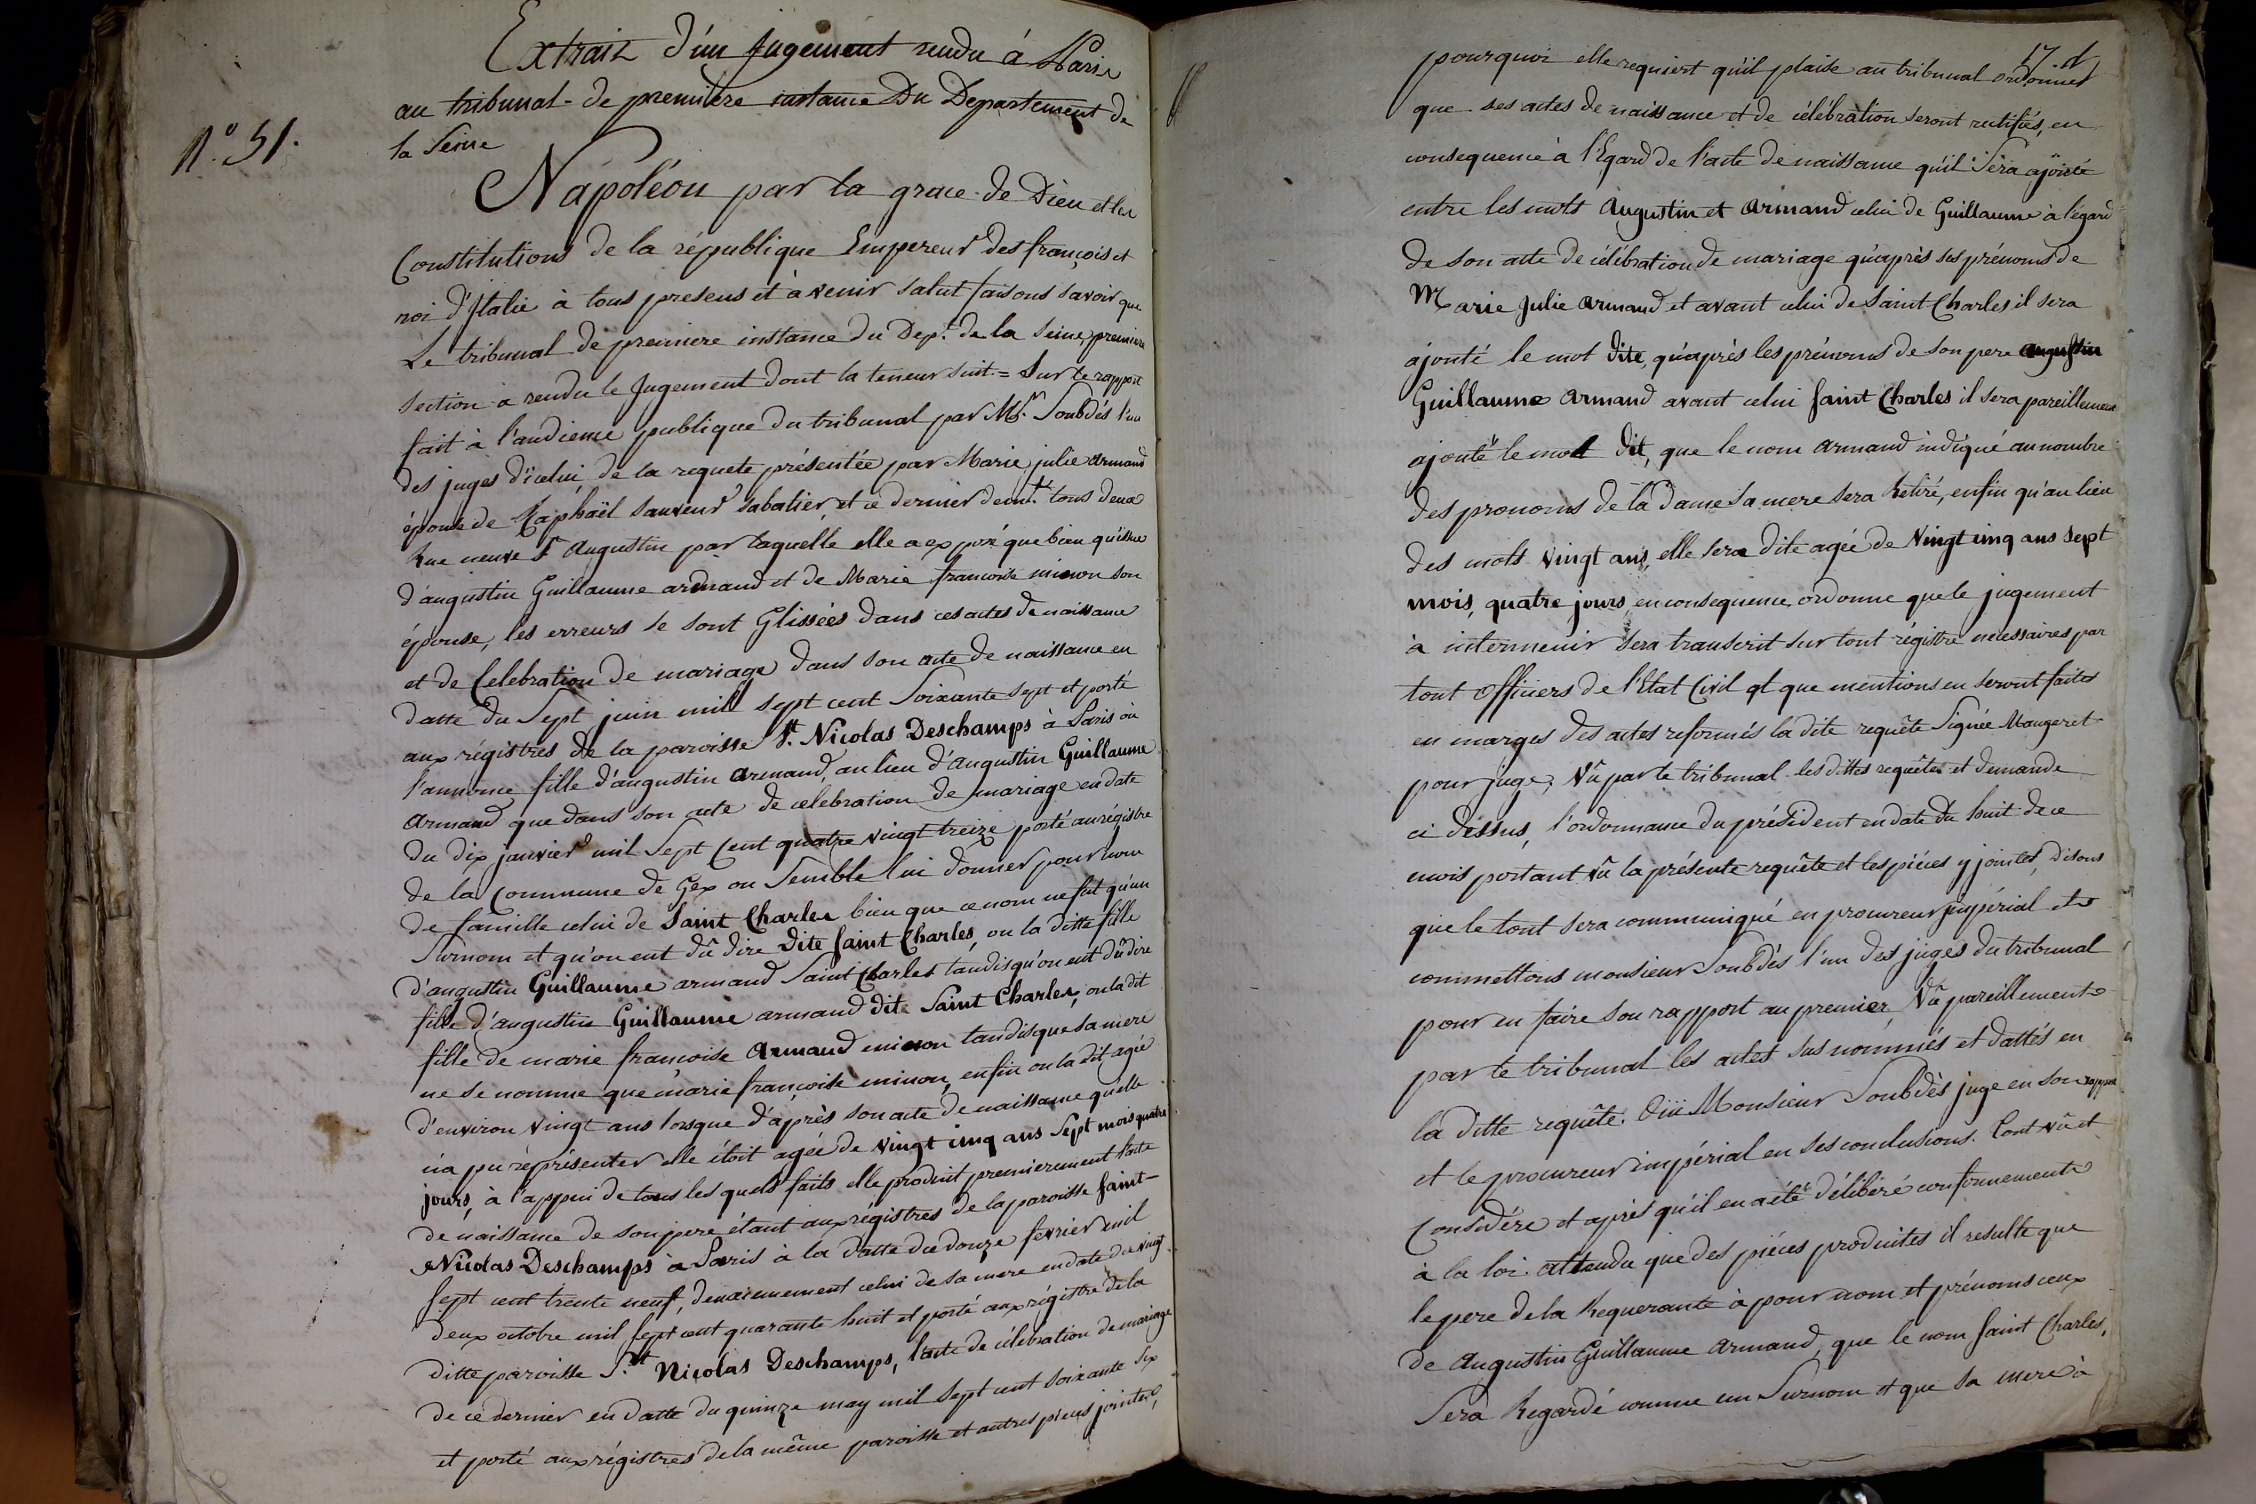 Extrait d'un Jugement rendu à Paris
au tribunal de première instance Du Departement de
la Seine
N.° 51.
Napoléon par la grace de Dieu et les
Constitutions de la république Empereur des françois et
roi d'Italie à tous presens et à venir salut faisons savoir que
Le tribunal de premiere instance du Dep.t de la Seine premiere
section a rendu le Jugement dont la teneur suit = Sur le rapport
fait à l'audience publique du tribunal par Mr. Soubdés l'un
des juges d'icelui, de la requete présentée par Marie julie armand
épouse de Raphaël sauveur sabatier, et ce dernier demt. tous deux
Rue neuve St augustin par laquelle elle a exposé que bien qu'issue
d'augustin Guillaume armand et de Marie francoise minon son
épouse, les erreurs se sont Glissées dans ces actes de naissance
et de Celebration de mariage dans son acte de naissance en
datte du Sept juin mil sept cent Soixante sept et porté
aux régistres de la paroisse St. Nicolas Deschamps à Paris on
l'annonce fille d'augustin armand, au lieu d'augustin Guillaume
armand que dans son acte de celebration de mariage en date
du dix janvier mil Sept Cent quatre vingt treize porté au régistre
de la Commune de Gex on Semble lui donner pour nom
de famille celui de Saint Charles bien que ce nom ne fut qu'un
Surnom et qu'on eut dû dire dite Saint Charles, on la ditte fille
d'augustin Guillaume armand Saint Charles tandis qu'on eut dû dire
fille d'augustin Guillaume armand dit Saint Charles, on la dit
fille de marie francoise armand minon tandisque sa mere
ne se nomme que marie françoise minon, enfin on la dit agée
d'environ vingt ans lorsque d'après son acte de naissance qu'elle
n'a pu réprésenter elle étoit agée de vingt cinq ans Sept mois quatre
jours, à l'appui de tous les quels faits elle produit premierement l'acte
de naissance de son pere étant aux régistres de la paroisse Saint-
Nicolas Deschamps à Paris à la datte du douze fevrier mil
sept cent trente neuf, deuxiemement celui de sa mere en date du vingt
deux octobre mil sept cent quarante huit et porté aux régistre de la
ditte paroisse St. Nicolas Deschamps, l'acte de célebration de mariage
de ce dernier en datte du quinze may mil sept cent soixante six
et porté aux régistres de la même paroisse et autres pieces jointes,
17
pourquoi elle requiert qu'il plaise au tribunal ordonner
que ses actes de naissance et de célébration seront rectifiés, en
consequence à l'Egard de l'acte de naissance qu'il Sera ajouté
entre les mots Augustin et Armand celui de Guillaume à l'égard
de son acte de célébration de mariage qu'après ses prénoms de
Marie Julie armand et avant celui de Saint Charles il sera
ajouté le mot dite, qu'après les prénoms de son pere augustin
Guillaume armand avant celui Saint Charles il sera pareillement
ajouté le mot dit, que le nom armand indiqué au nombre
des pronoms de la dame sa mere sera Retiré, enfin qu'au lieu
des mots vingt ans, elle sera dite agée de Vingt cinq ans sept
mois, quatre jours, en consequence, ordonne que le jugement
à intervenir sera transcrit sur tout régistre necessaires par
tout officiers de l'Etat Civil et que mentions en seront faites
en marges des actes reformés la dite requête Signée Maugeret
pour juge, Vû par le tribunal les dittes requêtes et demande
ci dessus, l'ordonnance du président en date du huit de ce
mois portant vû la présente requête et les piéces y jointes, disons
que le tout sera communiqué en procureur impérial et
commettons monsieur Soubdès l'un des juges du tribunal
pour en faire son rapport au premier, Vû pareillement
par le tribunal les actes sus nommés et dattés en
la ditte requête. Oüi Monsieur Soubdès juge en son rapport
et le procureur impérial en ses conclusions. Tout vû et
Considéré et après qu'il en a été délibéré conformement
à la loi. attendu que des piéces produites il resulte que
le pere de la Requerante à pour nom et prénoms ceux
de Augustin Guillaume armand, que le nom Saint Charles,
Sera Regardé comme un Surnom et que sa mere à